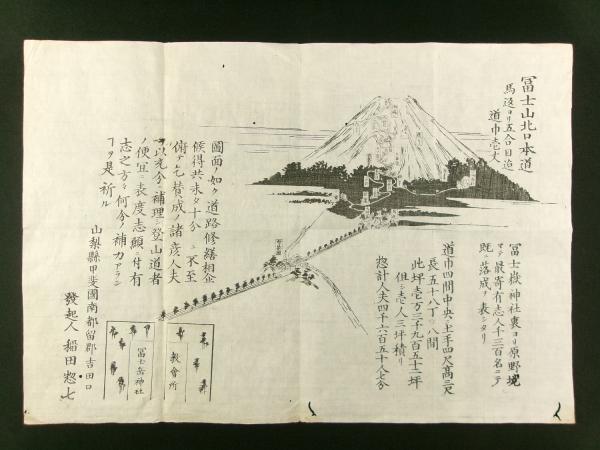 冨士山北口本道
馬返ヨリ五合目迠
道巾壱丈
冨士嶽神社裏ヨリ原野境
マテ最寄有志人千三百名ニテ
既ニ落成ヲ表シタリ
道巾四間中央ニ土手四尺髙三尺
長五十八丁八間
此坪壱万三千九百五十二坪
但シ壱人三坪積リ
惣計人夫四千六百五十人七分
圖面ノ如ク道路修繕相企
候得共未タ十分ニ不至
俯テ乞賛成ノ諸彦人夫
ヲ以充分補理シ登山道者
ノ便宜ニ表度志願ニ付有
志之方々何分ノ補力アラン
ヿヲ是祈ル
山梨縣甲斐國南都留郡吉田口
發起人 稲田惣七
教會所
冨士嶽神社